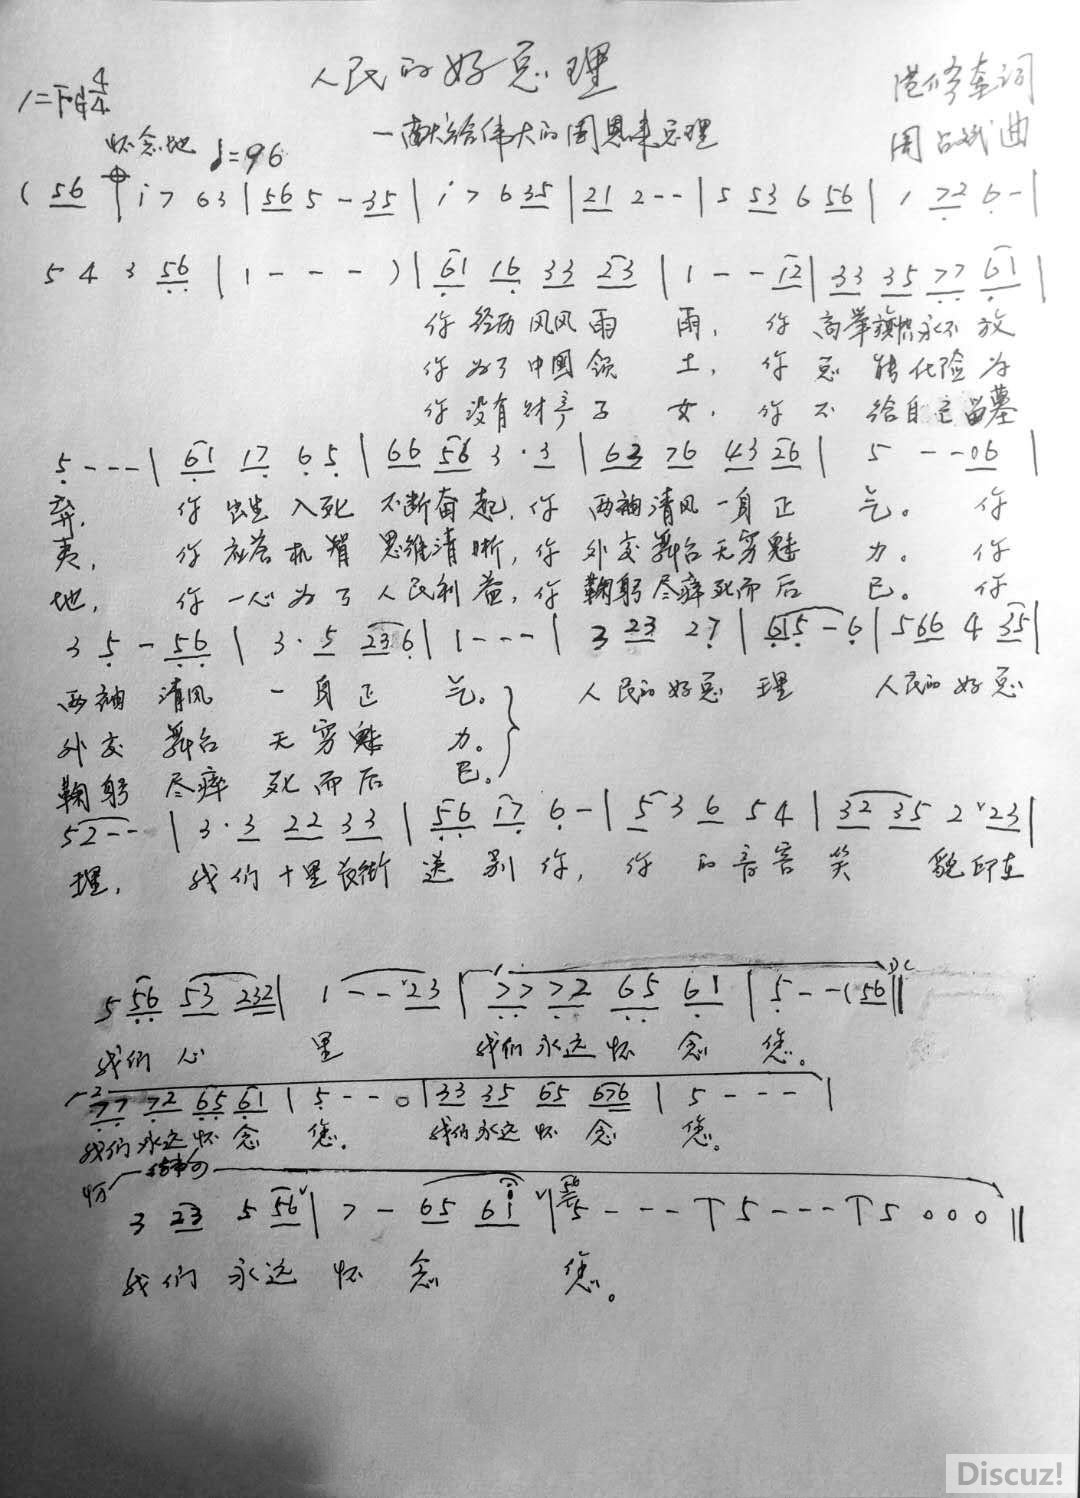 人民的好总理
1=F 4/4
—献给伟大的周恩来总理
词
周占斌曲
怀念地 ♩=96
( 56 | i 7 6 3 | 56 5 - 35 | i 7 6 35 | 21 2 - - | 5 53 6 56 | 1 72 6 - |
5 4 3 56 | 1 - - - ) | 61 16 33 23 | 1 - - 12 | 33 35 77 61 |
你经历风风雨雨，你高举旗帜永不放
你为了中国领土，你总能化险为
你没有财产子女，你不给自己留墓
5 - - - | 61 17 6 5 | 66 56 3 · 3 | 63 76 43 26 | 5 - - 06 |
弃，你出生入死不断奋起，你两袖清风一身正气。你
夷，你应答机智思维清晰，你外交舞台无穷魅力。你
地，你一心为了人民利益，你鞠躬尽瘁死而后已。你
3 5 - 56 | 3 · 5 23 6 | 1 - - - | 3 23 27 | 615 - 6 | 566 4 35 |
两袖清风一身正气。人民的好总理人民的好总
外交舞台无穷魅力。
鞠躬尽瘁死而后已。
52 - - | 3 · 3 22 33 | 56 17 6 - | 5 3 6 5 4 | 32 35 2 ˅23 |
理，我们十里长街送别你，你的音容笑貌印在
5 56 53 232 | 1 - - ˅23 | 77 72 65 61 | 5 - - ( 56 ‖
D.C
我们心里我们永远怀念您。
2
77 72 65 61 | 5 - - 0 | 33 35 65 676 | 5 - - - |
我们永远怀念您。我们永远怀念您。
结束句
3 23 5 56˅ | 7 - 65 6i ˅ | 56 5 - - - ↑ 5 - - - ↑ 5 0 0 0 ‖
我们永远怀念您。
Discuz!